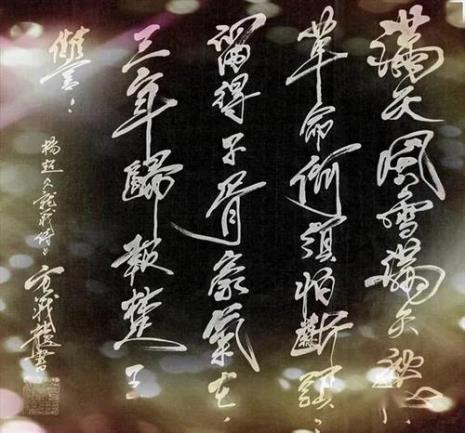 滿天風雪滿天愁
革命何須怕斷頭
留得子胥豪氣在
三年歸報楚王
讐
楊超就義詩 書